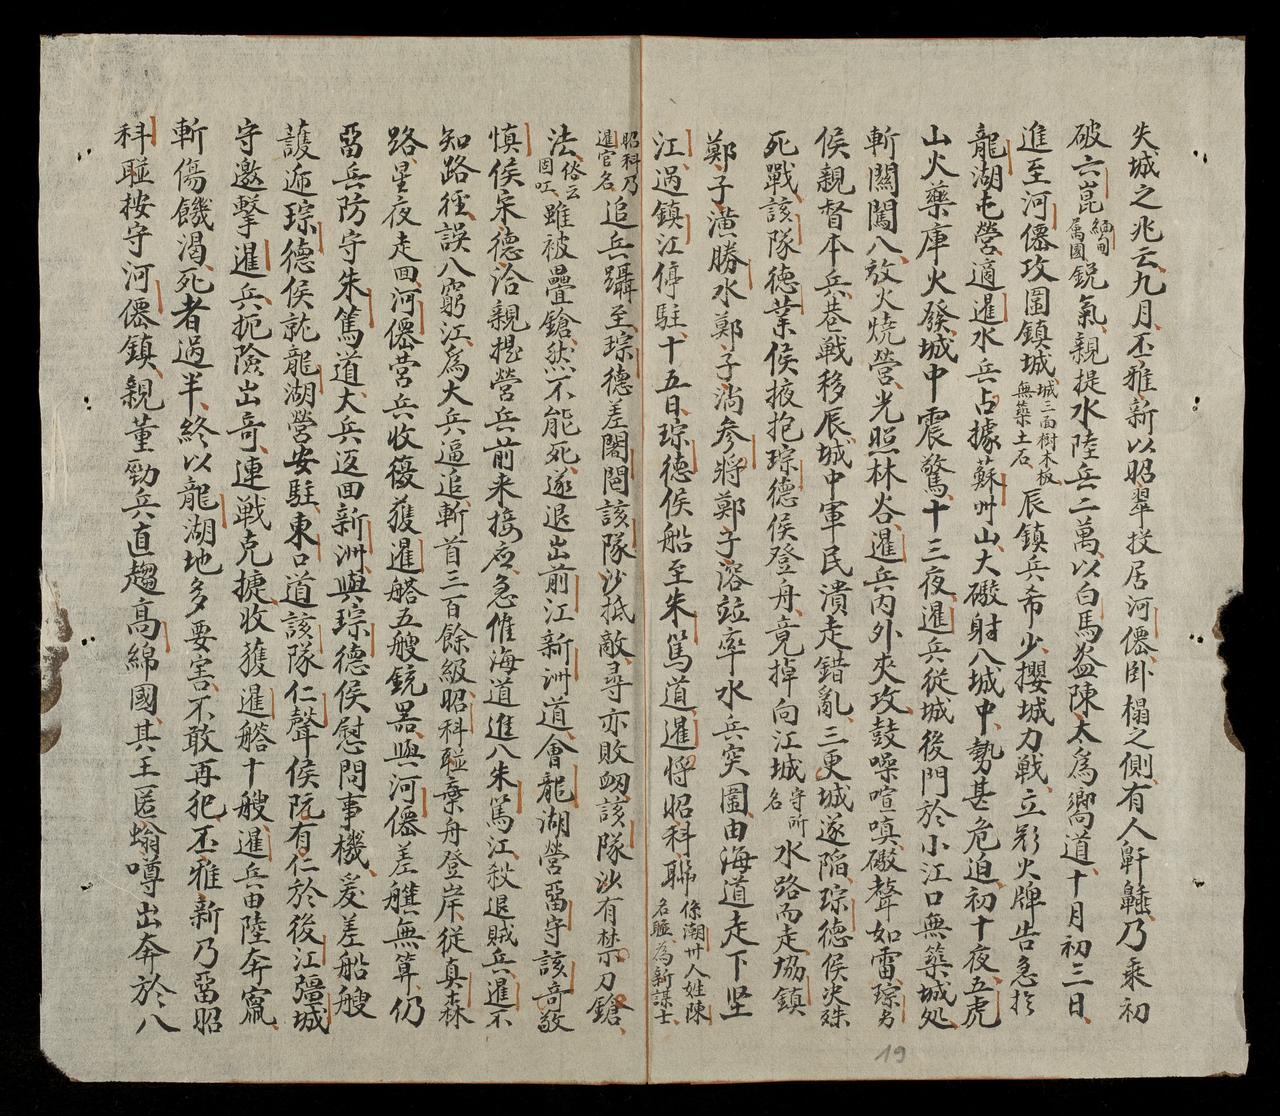 失城之兆云九月丕雅新以昭翠投居河僊臥榻之側有人鼾䶎乃乘初
破六崑緬甸属國銳氣親提水陸兵二萬以白馬盜陳太爲嚮道十月初三日
進至河僊攻圍鎮城城三面樹木板無築土石辰鎮兵希少攖城力戰立彩火牌告急於
龍湖屯營適暹水兵占據蘇州山大礮射入城中勢甚危迫初十夜五虎
山火藥庫火發城中震驚十三夜暹兵從城後門於小江口無築城処
斬關闖入放火燒營光照林谷暹兵內外夾攻鼓噪喧嗔礮聲如雷琮德
侯親督本兵巷戰移辰城中軍民潰走錯亂三更城遂陷琮德侯決殊
死戰該隊德業侯掖抱琮德侯登舟竟掉向江城守所名水路而走協鎮
鄭子潢勝水鄭子淌參將鄭子溶竝率水兵突圍由海道走下堅
江過鎮江停駐十五日琮德侯船至朱篤道暹將昭科聯係潮州人姓陳名聯為新謀士
昭科乃暹官名追兵躡至琮德差闍閻該隊沙抵敵尋亦敗衂該隊沙有禁刀鎗
法俗云固叮雖被疊鎗然不能死遂退出前江新洲道會龍湖營畱守該奇敬
慎侯宋德洽親提營兵前来接应急催海道進入朱篤江殺退賊兵暹不
知路徑誤入窮江為大兵逼追斬首三百餘級昭科聯棄舟登岸從真森
路星夜走回河僊營兵收獲獲暹艚五艘銃噐與河僊差艤無算仍
畱兵防守朱篤道大兵返回新洲與琮德侯慰問事機爰差船艘
護遞琮德侯就龍湖營安駐東口道該隊仁聲侯阮有仁於後江彊城
守邀擊暹兵扼險出奇連戰克捷收獲暹艚十艘暹兵由陸奔竄
斬傷饑渴死者過半終以龍湖地多要害不敢再犯丕雅新乃畱昭
科聯按守河僊鎮親董勁兵直趨高綿國其王匿螉噂出奔於八